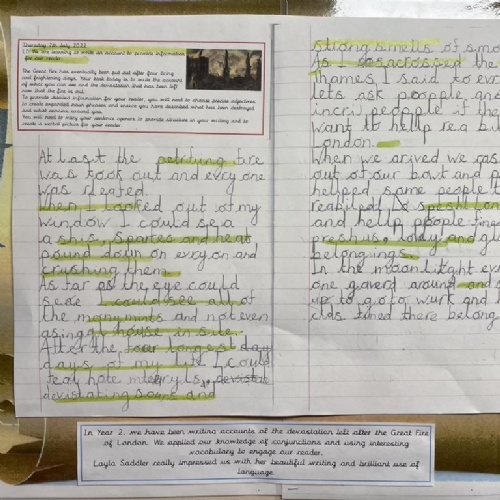 Thursday 7th July 2022
L.I: We are learning to write an account to provide information
for our reader.
The Great Fire has eventually been put out after four tiring
and frightening days. Your task today is to write the account
of what you can see and the devastation that has been left
now that the fire is out.
To provide detailed information for your reader, you will need to choose precise adjectives
to create expanded noun phrases and ensure you have described what has been destroyed
and what remains around you.
You will need to vary your sentence openers to provide structure in your writing and to
create a vivid picture for your reader.
At last the petrifying fire
was took out and every one
was releated.
When I looked out of my
window I could se a
a ship, Sparces and heat
pound down on evry on and
crushing them.
As far as the eye could
seee I could see all of
the monymints and not even
a singgl house in site.
After the four longest day
days of my life I could
feal hote misery
devistating sound and
strong smells of smo
As I the
Thames I said to eve
lets ask people and
incri pecople if the
want to hellp re a bui
London.
When we arived we
out of our bowt and p
hellped some people t
I speshl
and hellp people fine
preshus, lovly and gl
belongings.
In the moonlight eve
one around and
up to go to wurk and
clds there belong
In Year 2, we have been writing accounts of the devastation left after the Great Fire
of London. We applied our knowledge of conjunctions and using interesting
vocabulary to engage our reader.
Layla Saddler really impressed us with her beautiful writing and brilliant use of
language.